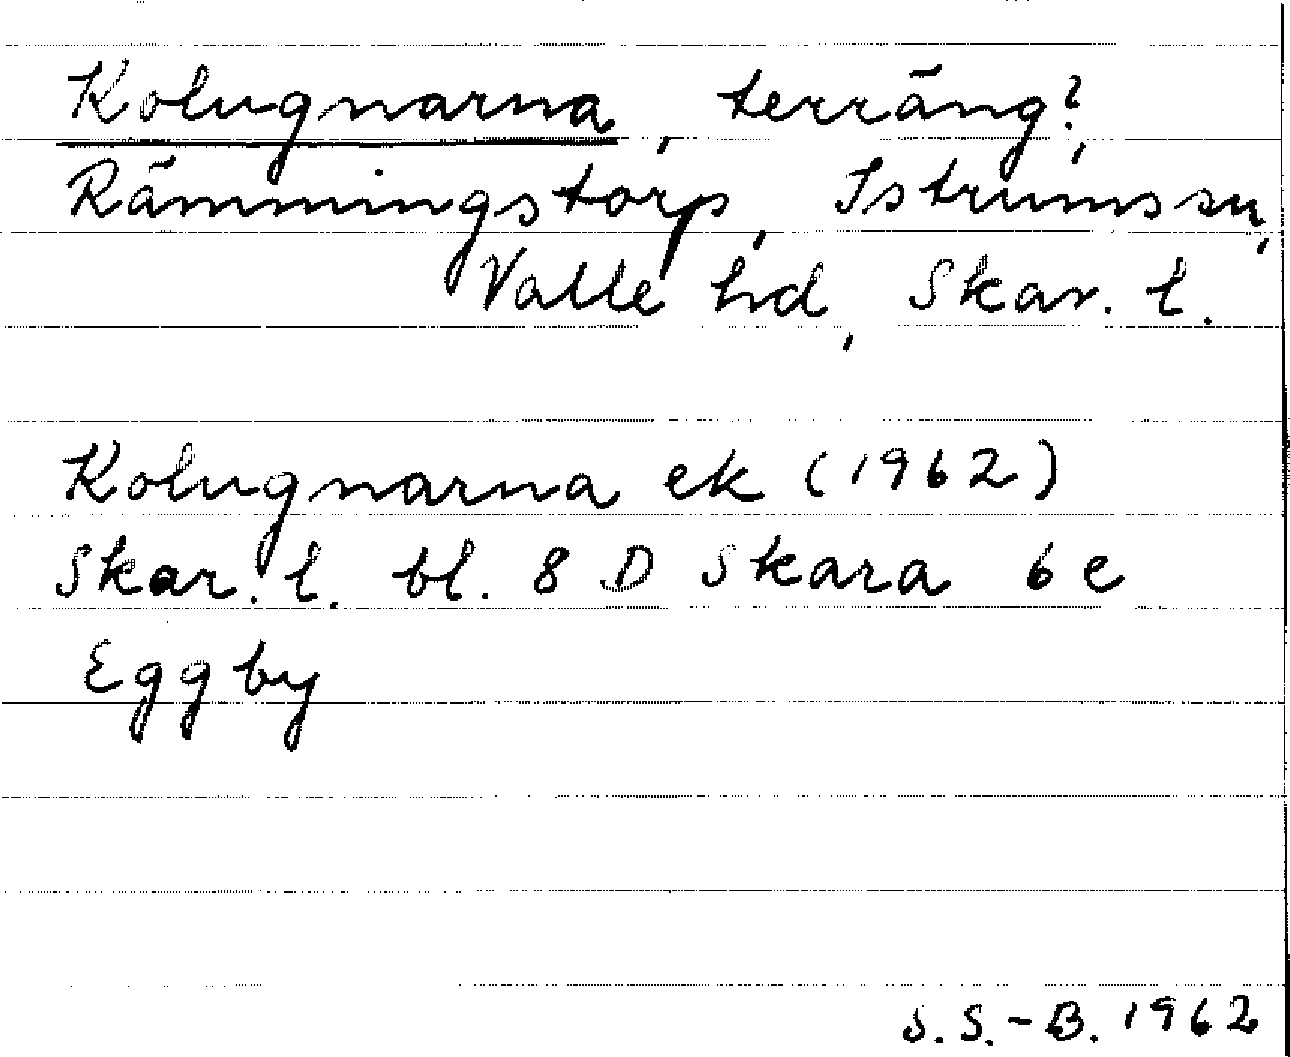 Kolugnarna, terräng?,
Rämmingstorp, Istrums sn,
Valle hd, Skar. l.
Kolugnarna ek (1962)
Skar. l. bl. 8 D Skara 6 e
Eggby
S. S.-B. 1962